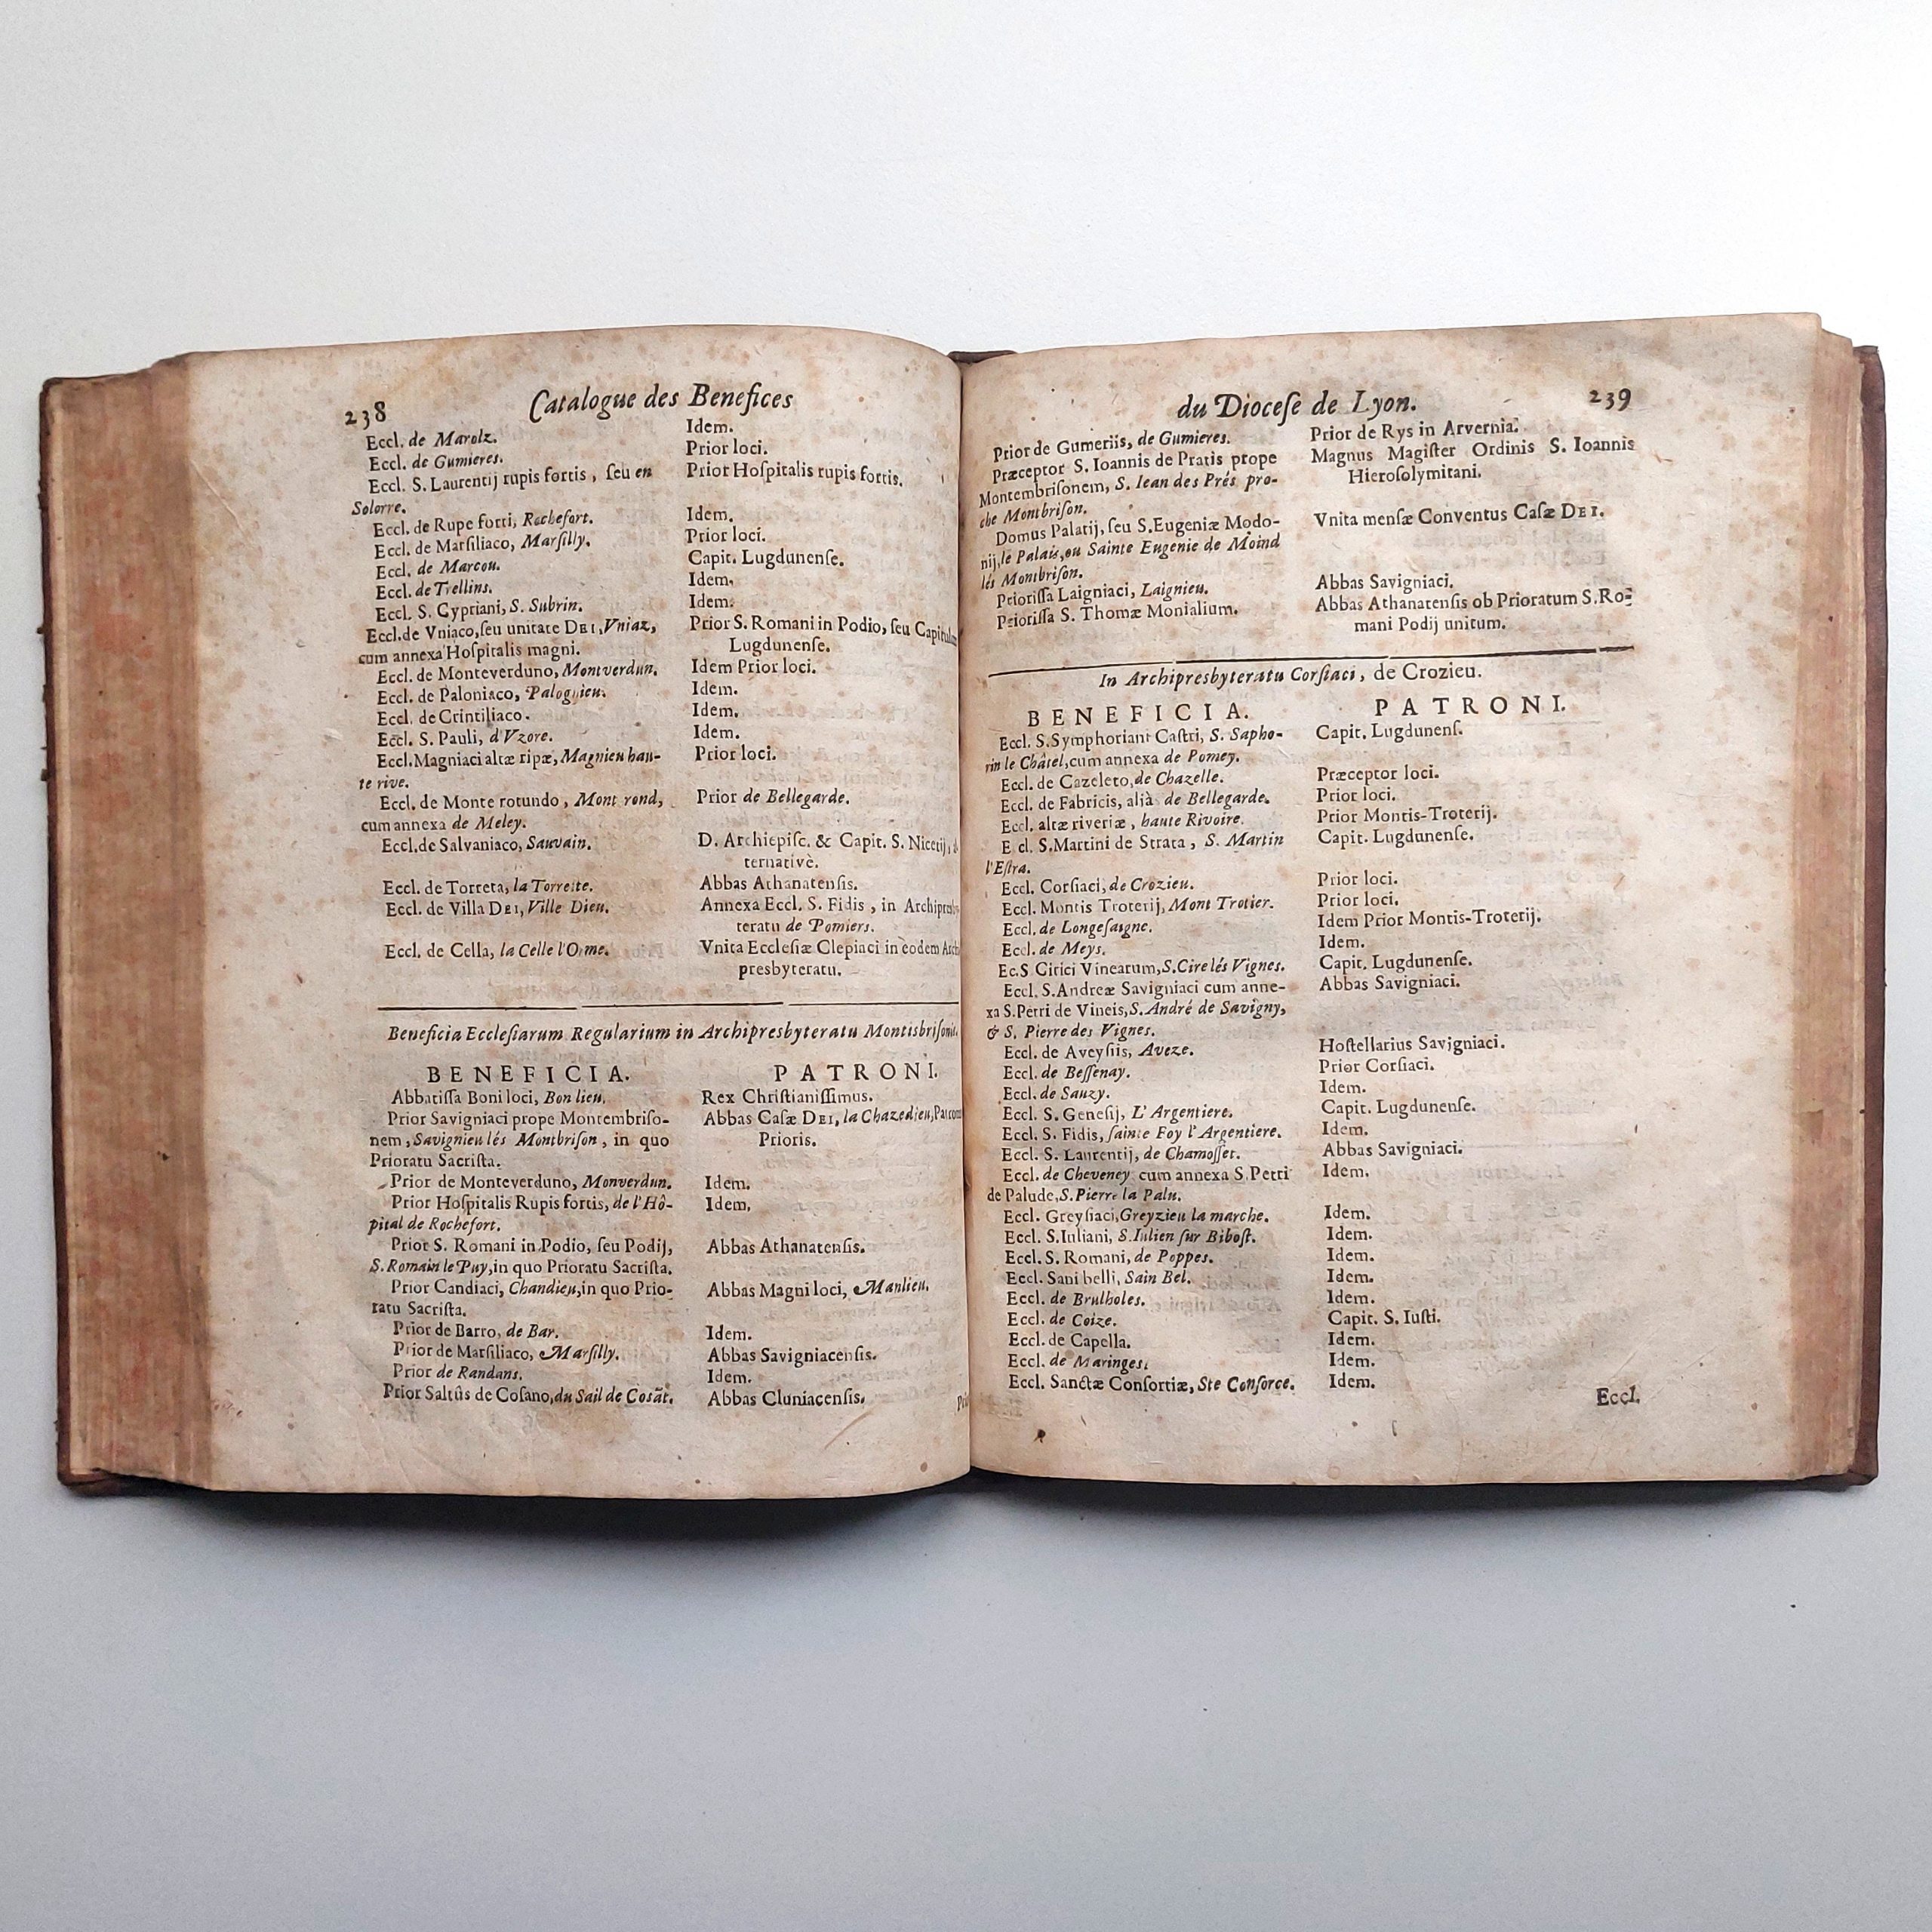 238 Catalogue des Benefices
Eccl. de Marolz. Idem.
Eccl. de Gumieres. Prior loci.
Eccl. S. Laurentij rupis fortis, ſeu en Prior Hoſpitalis rupis fortis.
Solorre.
Eccl. de Rupe forti, Rochefort. Idem.
Eccl. de Marſiliaco, Marſilly. Prior loci.
Eccl. de Marcou. Capit. Lugdunenſe.
Eccl. de Trellins. Idem.
Eccl. S. Cypriani, S. Subrin. Idem.
Eccl. de Vniaco, ſeu unitate DEI, Vniaz, Prior S. Romani in Podio, ſeu
cum annexa Hoſpitalis magni. Lugdunenſe.
Eccl. de Monteverduno, Montverdun. Idem Prior loci.
Eccl. de Paloniaco, Palognieu. Idem.
Eccl. de Crintiliaco. Idem.
Eccl. S. Pauli, d'Vzore. Idem.
Eccl. Magniaci altæ ripæ, Magnieu hau- Prior loci.
te rive.
Eccl. de Monte rotundo, Mont rond, Prior de Bellegarde.
cum annexa de Meley.
Eccl. de Salvaniaco, Sauvain. D. Archiepiſc. & Capit. S. Nicetij,
ternativè.
Eccl. de Torreta, la Torrette. Abbas Athanatenſis.
Eccl. de Villa DEI, Ville Dieu. Annexa Eccl. S. Fidis, in
teratu de Pomiers.
Eccl. de Cella, la Celle l'Orme. Vnita Eccleſiæ Clepiaci in eodem
presbyteratu.
Beneficia Eccleſiarum Regularium in Archipresbyteratu Montisbriſonis.
BENEFICIA. PATRONI.
Abbatiſſa Boni loci, Bon lieu. Rex Chriſtianiſſimus.
Prior Savigniaci prope Montembriſo- Abbas Caſæ DEI, la Chazedieu,
nem, Savignieu lés Montbriſon, in quo Prioris.
Prioratu Sacriſta.
Prior de Monteverduno, Monverdun. Idem.
Prior Hoſpitalis Rupis fortis, de l'Hô- Idem.
pital de Rochefort.
Prior S. Romani in Podio, ſeu Podij, Abbas Athanatenſis.
S. Romain le Puy, in quo Prioratu Sacriſta.
Prior Candiaci, Chandieu, in quo Prio- Abbas Magni loci, Manlieu.
ratu Sacriſta.
Prior de Barro, de Bar. Idem.
Prior de Marſiliaco, Marſilly. Abbas Savigniacenſis.
Prior de Randans. Idem.
Prior Saltûs de Coſano, du Sail de Cosãt. Abbas Cluniacenſis.
du Dioceſe de Lyon. 239
Prior de Gumeriis, de Gumieres. Prior de Rys in Arvernia.
Præceptor S. Ioannis de Pratis prope Magnus Magiſter Ordinis S. Ioannis
Montembriſonem, S. Iean des Prés pro- Hieroſolymitani.
che Montbriſon.
Domus Palatij, ſeu S. Eugeniæ Modo- Vnita menſæ Conventus Caſæ DEI.
nij, le Palais, ou Sainte Eugenie de Moind
lés Montbriſon.
Prioriſſa Laigniaci, Laignieu. Abbas Savigniaci.
Prioriſſa S. Thomæ Monialium. Abbas Athanatenſis ob Prioratum S. Ro-
mani Podij unitum.
In Archipresbyteratu Corſiaci, de Crozieu.
BENEFICIA. PATRONI.
Eccl. S. Symphoriani Caſtri, S. Sapho- Capit. Lugdunenſ.
rin le Châtel, cum annexa de Pomey.
Eccl. de Cazeleto, de Chazelle. Præceptor loci.
Eccl. de Fabricis, aliàs de Bellegarde. Prior loci.
Eccl. altæ riveriæ, haute Rivoire. Prior Montis-Troterij.
Eccl. S. Martini de Strata, S. Martin Capit. Lugdunenſe.
l'Eſtra.
Eccl. Corſiaci, de Crozieu. Prior loci.
Eccl. Montis Troterij, Mont Trotier. Prior loci.
Eccl. de Longeſaigne. Idem Prior Montis-Troterij.
Eccl. de Meys. Idem.
Ec. S Cirici Vinearum, S. Cire lés Vignes. Capit. Lugdunenſe.
Eccl. S. Andreæ Savigniaci cum anne- Abbas Savigniaci.
xa S. Petri de Vineis, S. André de Savigny,
& S. Pierre des Vignes.
Eccl. de Aveyſiis, Aveze. Hoſtellarius Savigniaci.
Eccl. de Beſſenay. Prior Corſiaci.
Eccl. de Sauzy. Idem.
Eccl. S. Geneſij, L'Argentiere. Capit. Lugdunenſe.
Eccl. S. Fidis, ſainte Foy l'Argentiere. Idem.
Eccl. S. Laurentij, de Chamoſſet. Abbas Savigniaci.
Eccl. de Cheveney cum annexa S. Petri Idem.
de Palude, S. Pierre la Palu.
Eccl. Greyſiaci, Greyzieu la marche. Idem.
Eccl. S. Iuliani, S. Iulien ſur Biboſt. Idem.
Eccl. S. Romani, de Poppes. Idem.
Eccl. Sani belli, Sain Bel. Idem.
Eccl. de Brulholes. Idem.
Eccl. de Coize. Capit. S. Iuſti.
Eccl. de Capella. Idem.
Eccl. de Maringes. Idem.
Eccl. Sanctæ Conſortiæ, Ste Conſorce. Idem.
Eccl.